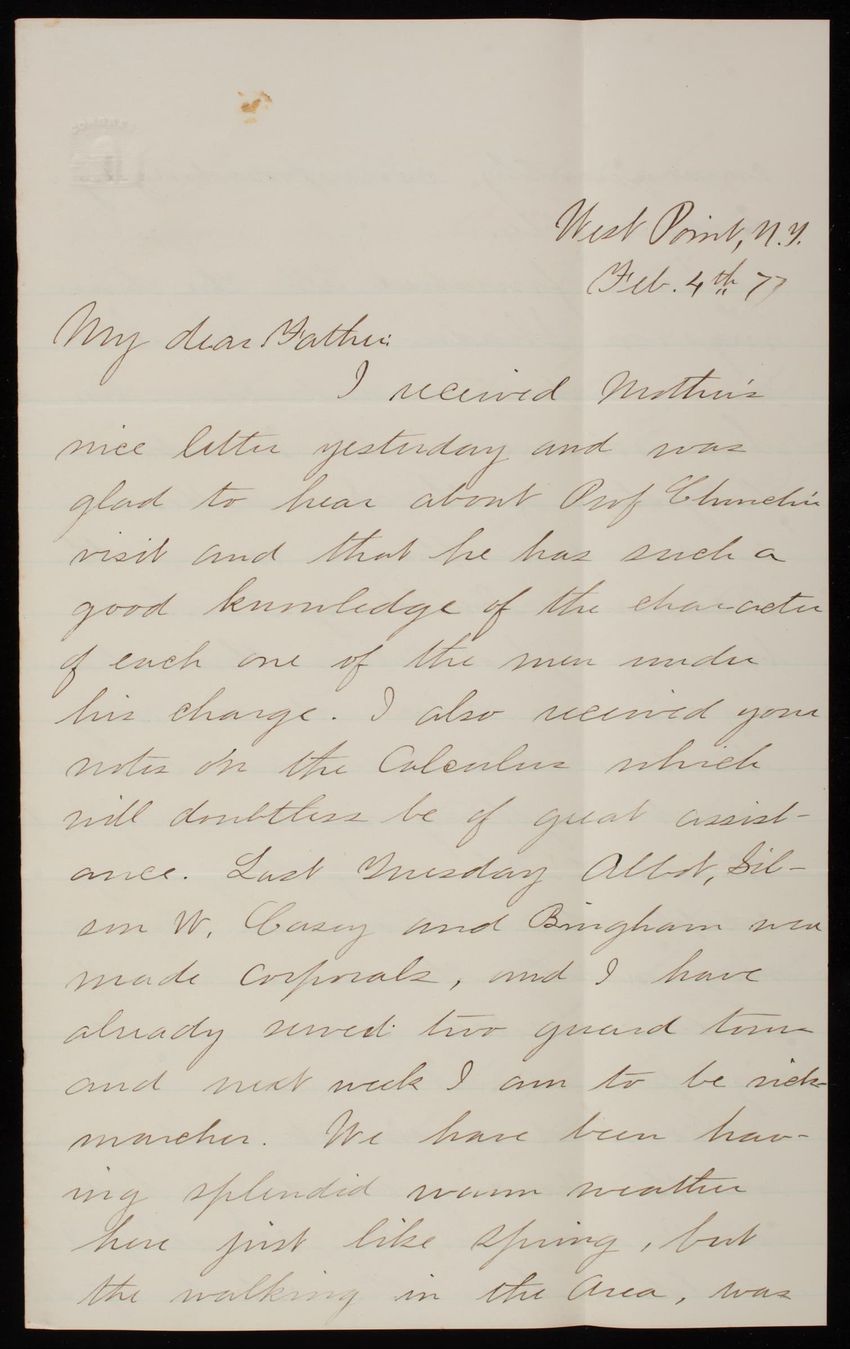 West Point, N.Y.
Feb. 4th 77
My dear Father:
I received Mother's
nice letter yesterday and was
glad to hear about Prof Church's
visit and that he has such a
good knowledge of the character
of each one of the men under
his charge. I also received your
notes on the Calculus which
will doubtless be of great assist-
ance. Last Tuesday Abbot, Gil-
son W. Casey and Bingham were
made Corporals, and I have
already served two guard tours
and next week I am to be sick-
marcher. We have been hav-
ing splendid warm weather
here just like spring, but
the walking in the Area, was